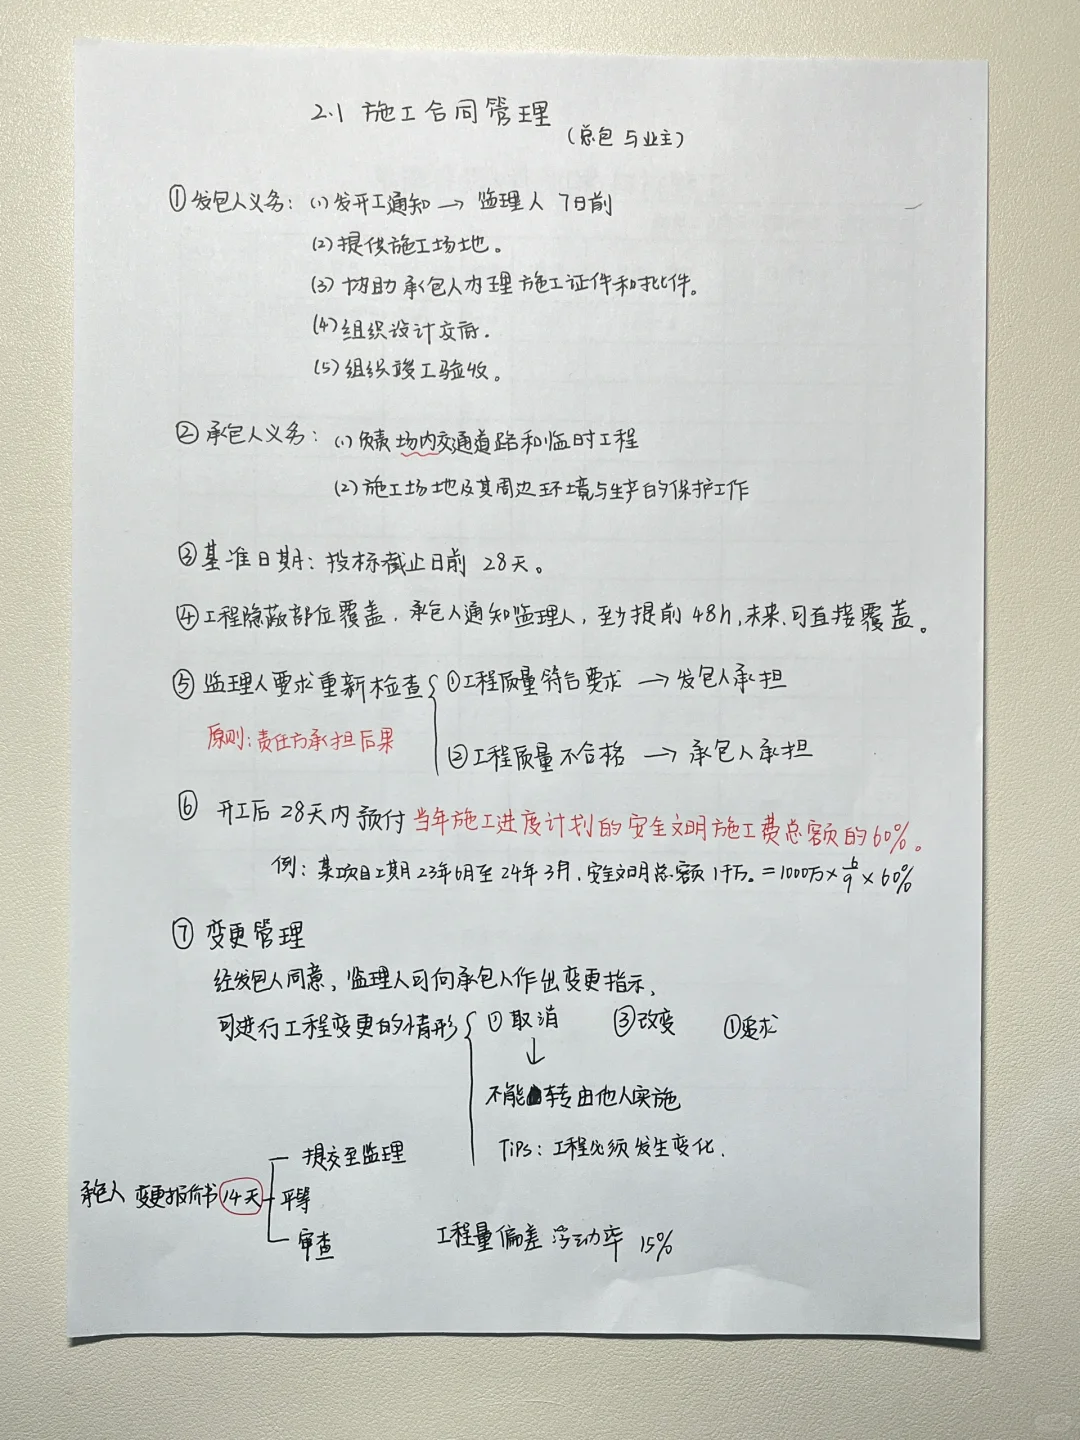 2.1 施工合同管理
(总包与业主)
①发包人义务: (1)发开工通知 → 监理人 7日前
(2)提供施工场地。
(3)协助承包人办理施工证件和批件。
(4)组织设计交底.
(5)组织竣工验收。
②承包人义务: (1)负责场内交通道路和临时工程
(2)施工场地及其周边环境与生产的保护工作
③基准日期: 投标截止日前 28天。
④工程隐蔽部位覆盖. 承包人通知监理人, 至少提前48h, 未来、可直接覆盖。
⑤监理人要求重新检查 ①工程质量符合要求 → 发包人承担
原则:责任方承担后果
②工程质量不合格 → 承包人承担
⑥ 开工后28天内预付当年施工进度计划的安全文明施工费总额的60%。
例: 某项目工期23年6月至24年3月, 安全文明总额1千万。=1000万×6/9×60%
⑦ 变更管理
经发包人同意, 监理人可向承包人作出变更指示,
可进行工程变更的情形 ①取消 ③改变 ①追求
↓
不能转由他人实施
Tips: 工程必须发生变化.
提交至监理
承包人 变更报价书14天 平等
审查
工程量偏差 浮动率 15%